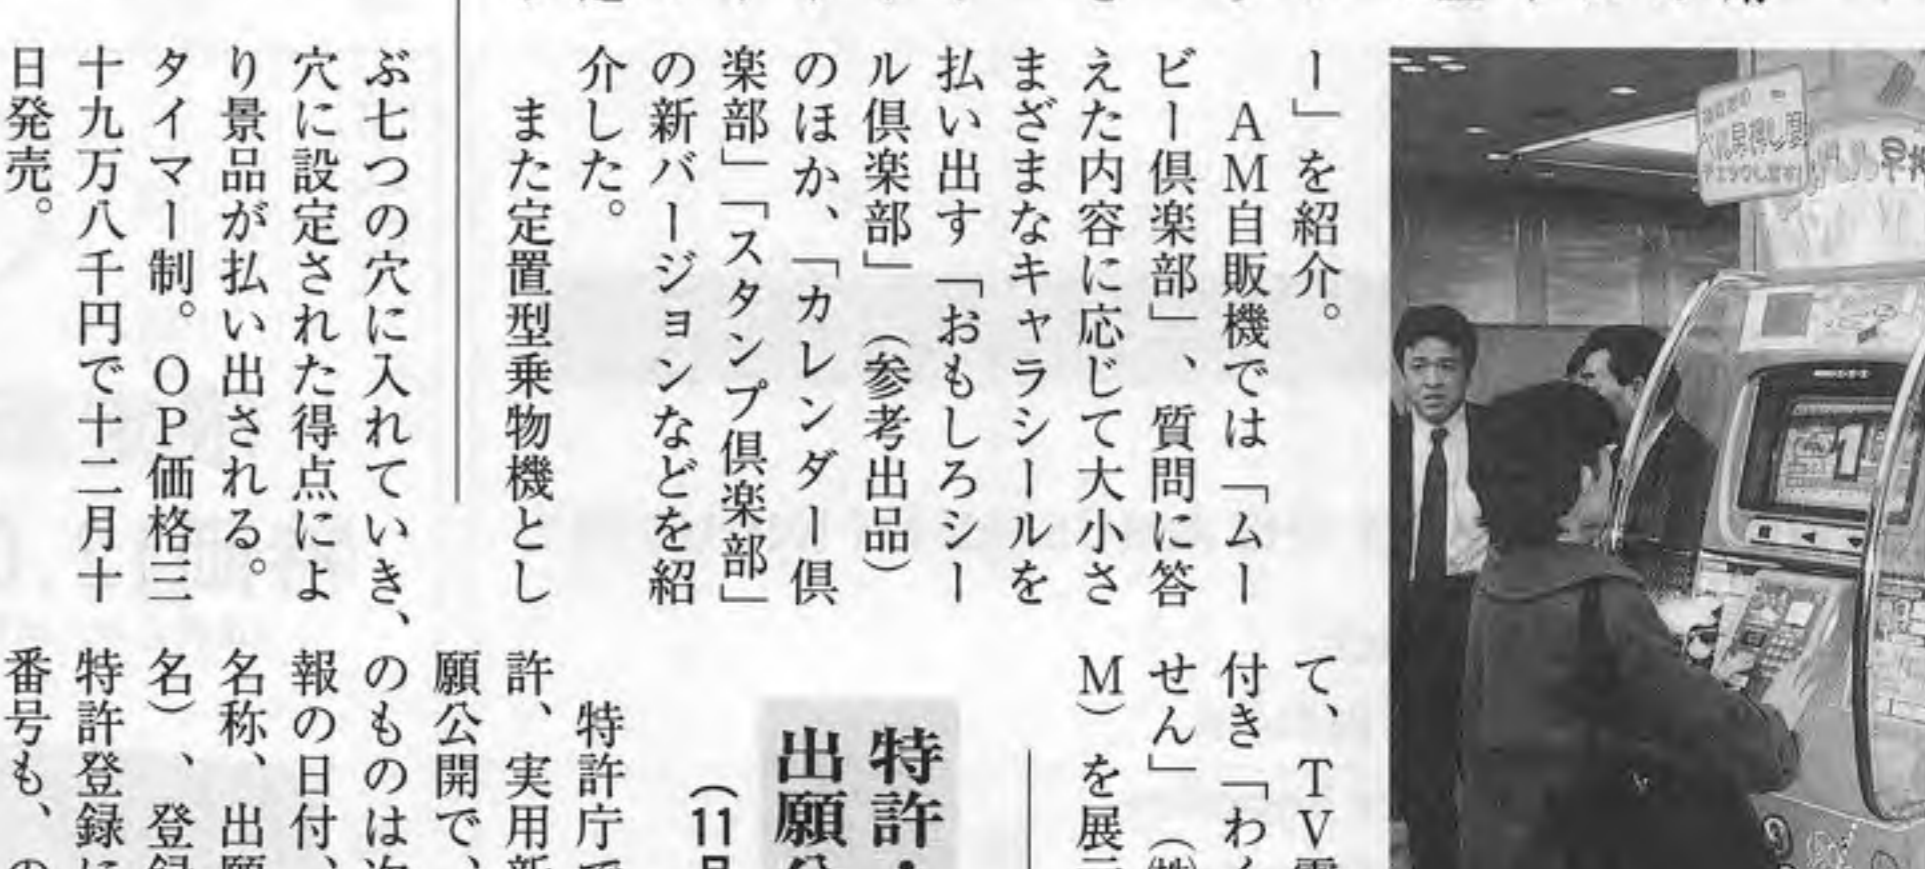 ー」を紹介。
AM自販機では「ムー
ビー倶楽部」、質問に答
えた内容に応じて大小さ
まざまなキャラシールを
払い出す「おもしろシー
ル倶楽部」（参考出品）
のほか、「カレンダー倶
楽部」「スタンプ倶楽部」
の新バージョンなどを紹
介した。
また定置型乗物機とし
て、TV
付き「わ
せん」
M）を展
ぶ七つの穴に入れていき、
穴に設定された得点によ
り景品が払い出される。
タイマー制。OP価格三
十九万八千円で十二月十
日発売。
特許・
出願
（11
特許庁で
許、実用新
願公開で、
のものは次
報の日付、
名称、出願
名）、登録
特許登録に
番号も、の